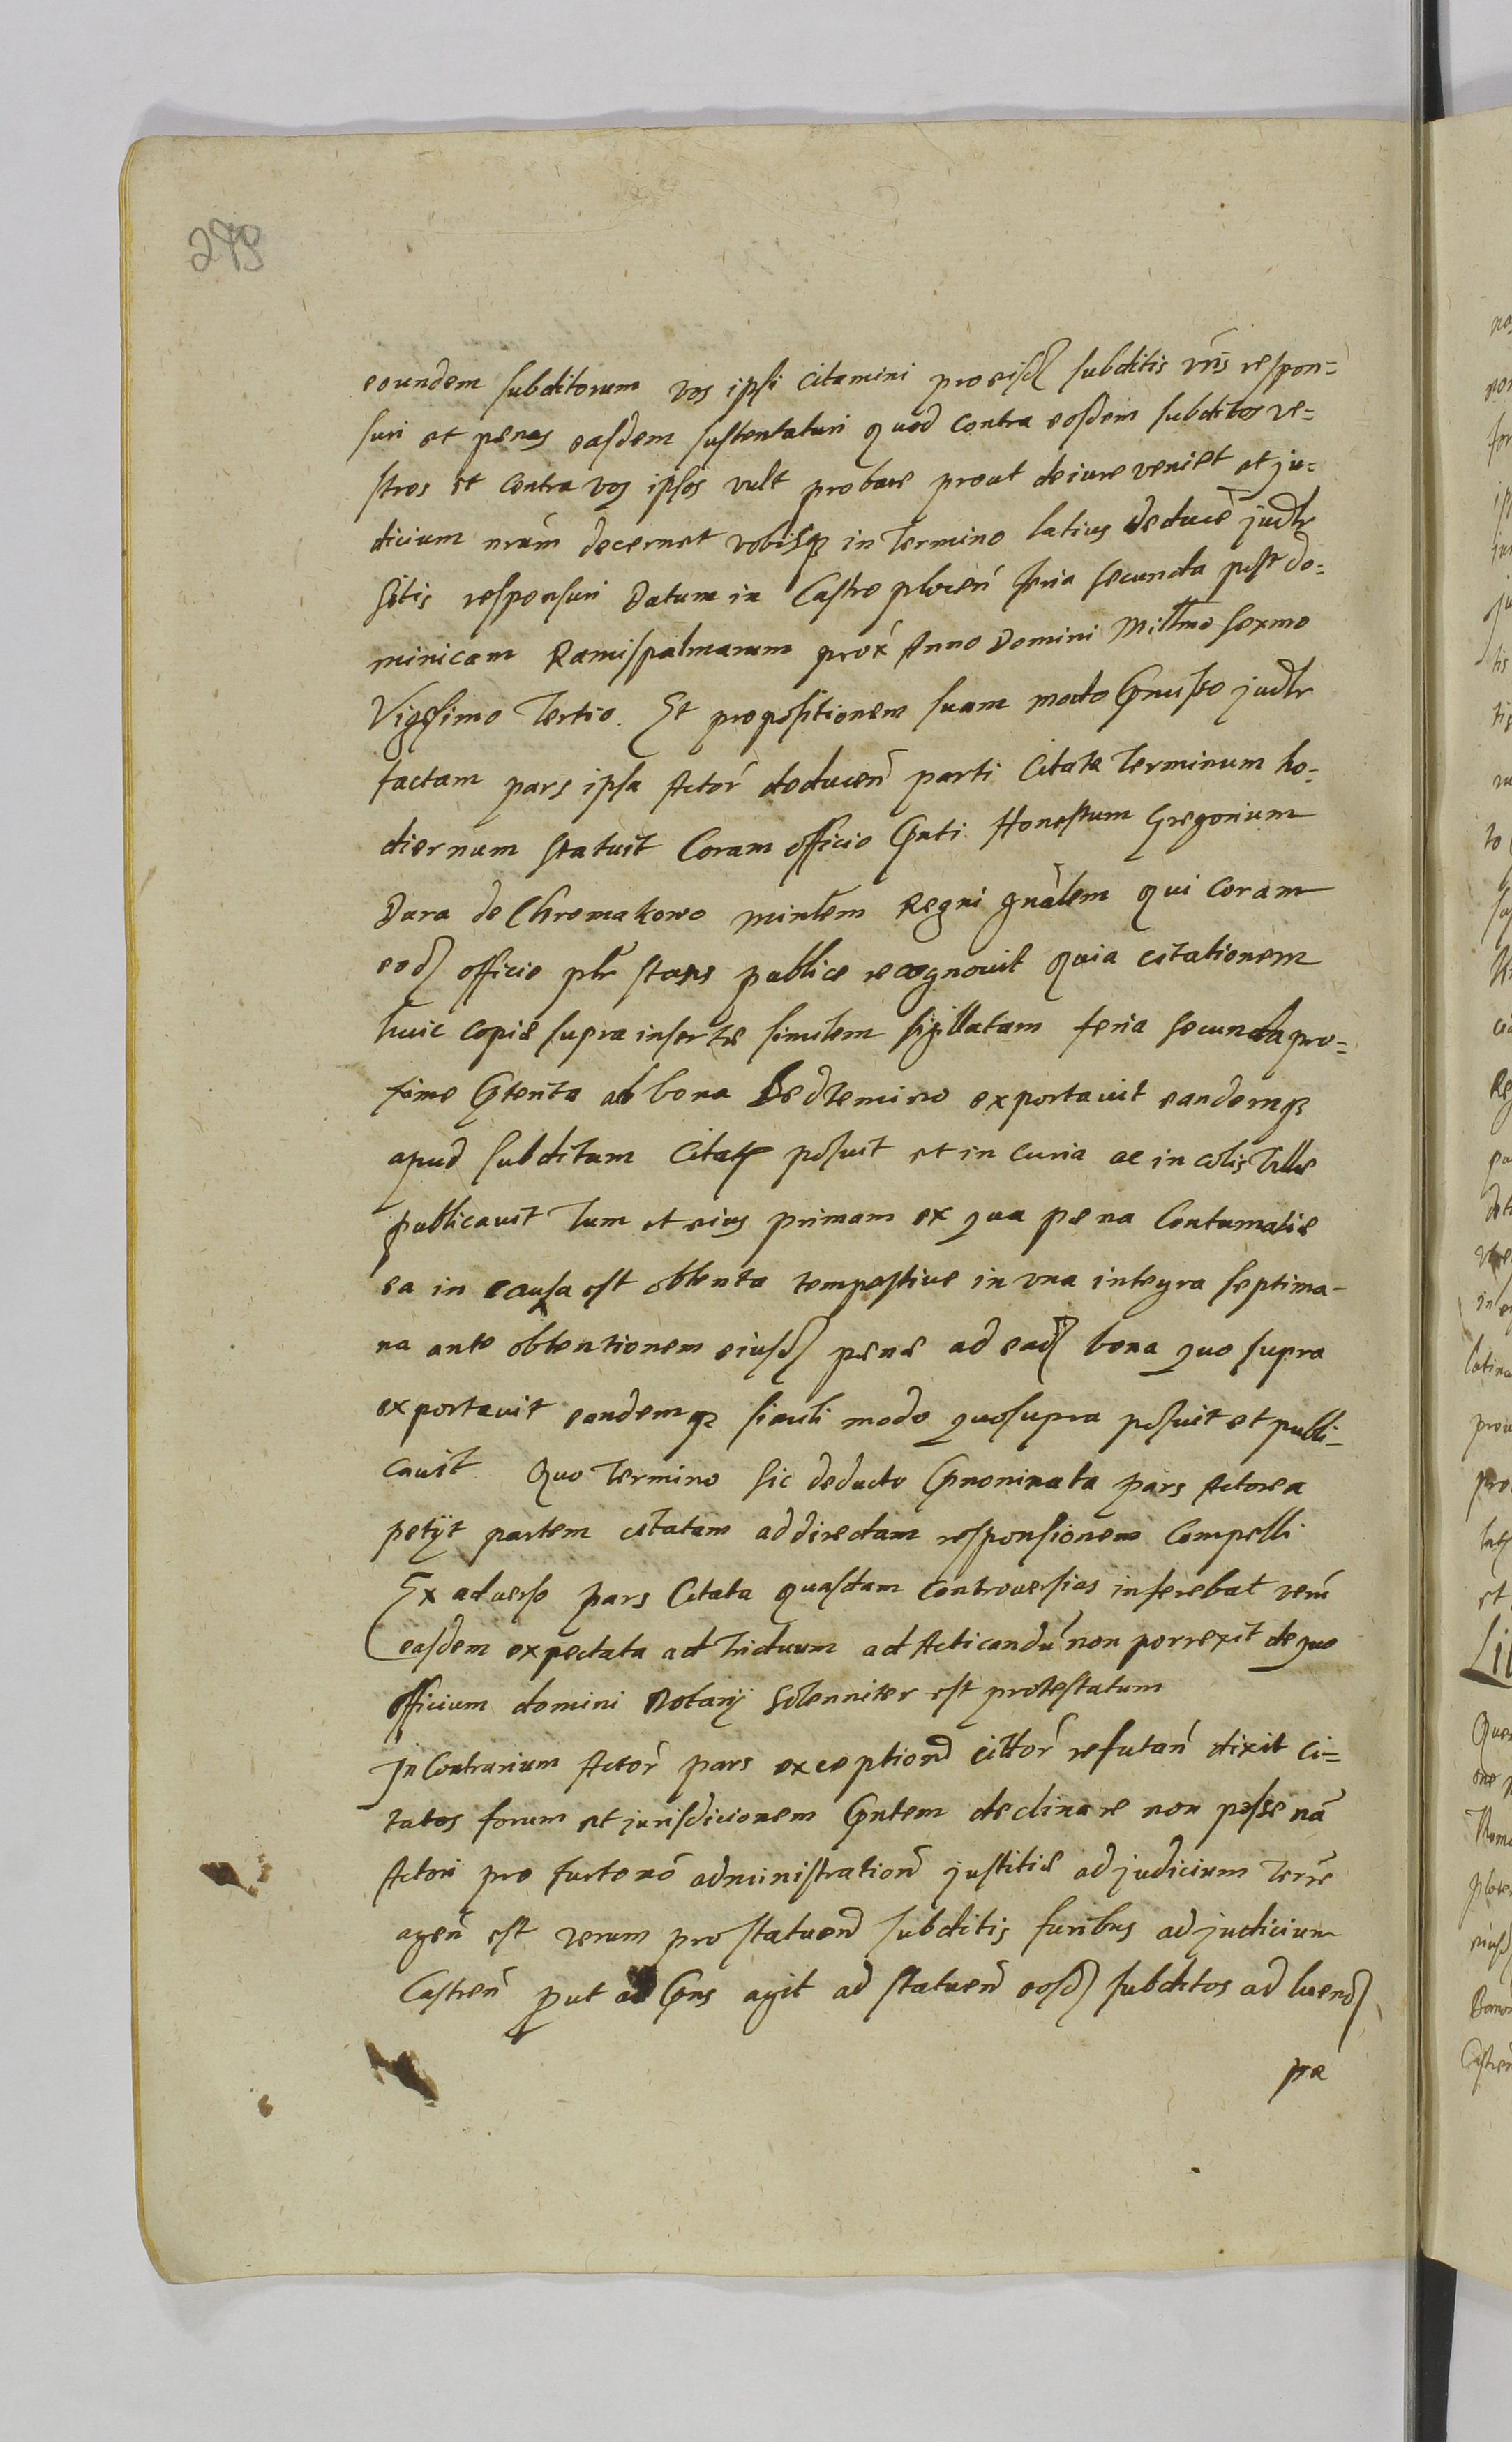 278
eoundem subditorum vos ipsi citamini pro eisd subditis vris respon=
suri et penas easdem sustentaturi quod contra eosdem subditos ve=
stros et contra vos ipsos vult probare prout de iure veniet et ju=
dicium nrum decernet vobisq in termino latius deduce judlr
sitis responsuri Datum in Castro plocen feria secunda post do=
minicam Ramispalmarum prox Anno Domini Millmo sexmo
Vigesimo tertio. Et propositionem suam modo judlr
factam pars ipsa Actor deducen parti Citate terminum ho=
diernum statuit Coram officio Gnti Honestum Gregorium
Dara de Chromakowo mintlem Regni gnalem qui coram
eod officio plr stans publice recognouit quia citationem
huic copie supra inserte similem sigillatam feria secunda pro=
xime Gtenta ad bona exportauit eandemq
apud subditum Citat posuit et in curia ac incolis Ville
publicauit tum et eius primam ex qua pena Contumatie
ea in causa est obtenta tempestiue in vna integra septima-
na ante obtentionem eiusd pene ad ead bona quo supra
exportauit eandemq simili modo quo supra posuit et publi-
cauit Quo termino sic deducto Gnominata pars Actorea
petijt partem citatam ad directam responsionem Compelli
Ex aduerso pars Citata quasdam controuersias inferebat verum
easdem expectata ad triduum ad Acticandu non porrexit de quo
officium domini Notarij solenniter est protestatum
In Contrarium Actor pars exception cittor refutan dixit Ci=
tatos forum et jurisdicionem Gntem declinare non posse na
Actori pro furto no administration justitie ad judicium terre
agen est verum pro statuend subditis furibus ad judicium
Castren put Gns agit ad statuen eosd subditos ad luend
pe